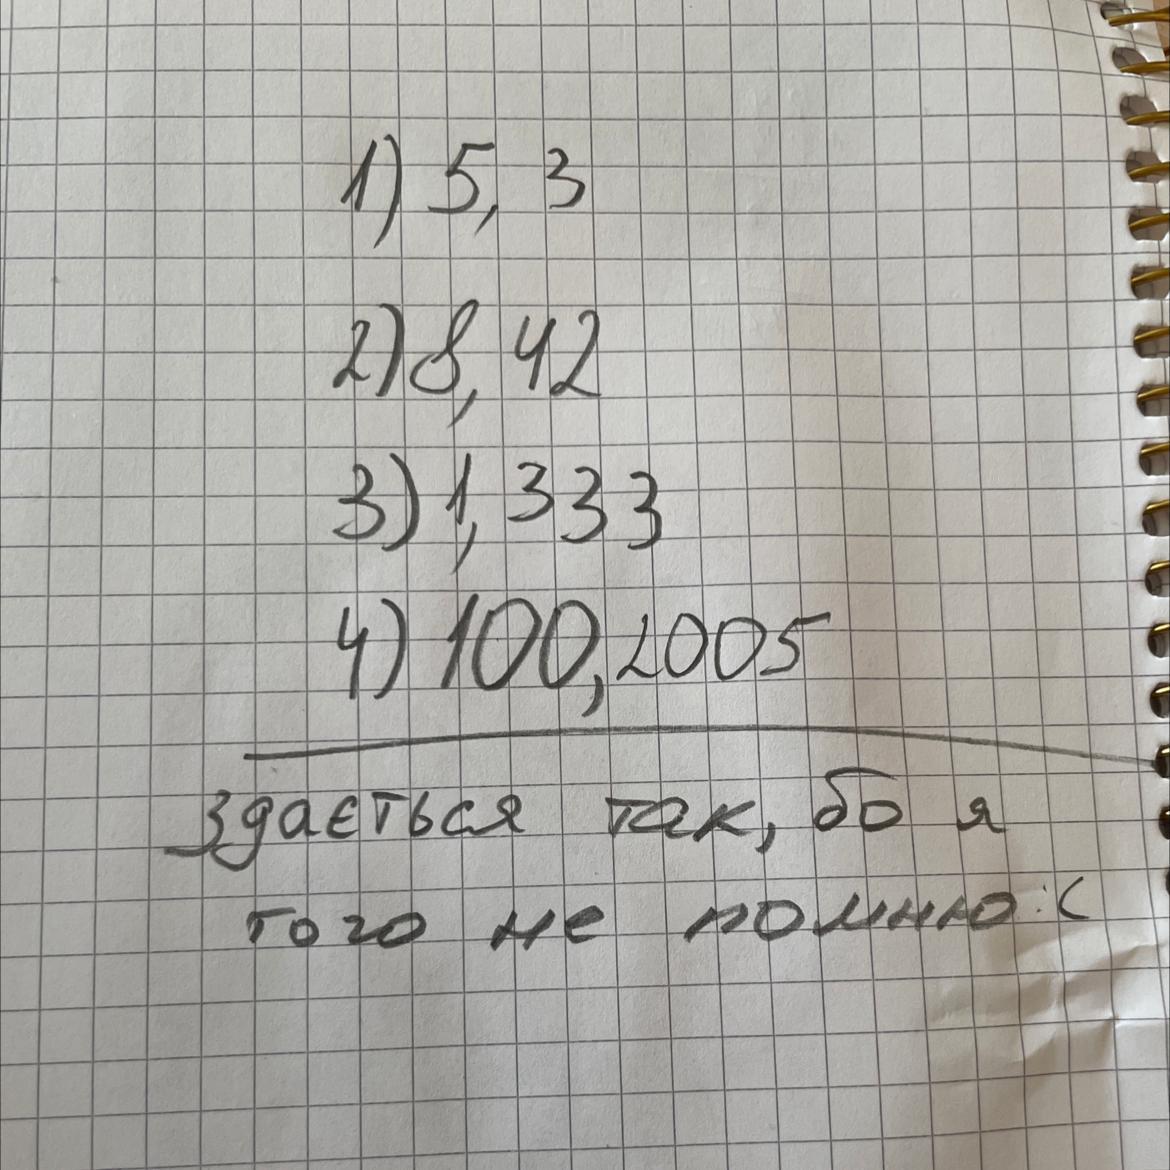 1) 5, 3
2) 8, 42
3) 1, 333
4) 100,2005
здається так, бо я
того не помню :(